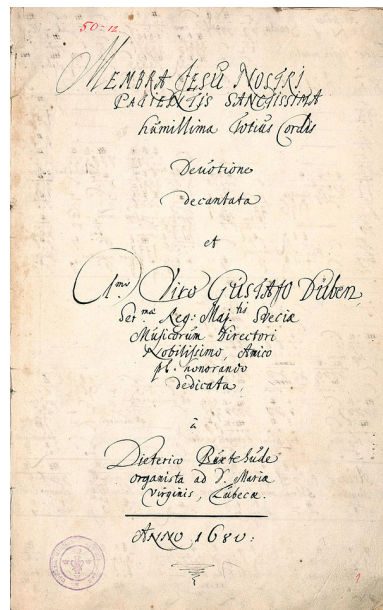 50=12
MEMBRA JESU NOSTRI
PATIENTIS SANCTISSIMA
humillima Totius Cordis
Devotione
decantata
et
Viro GUSTAVO Düben,
Ser.mæ Reg: Maj.tis Sveciæ
Musicorum Directori
Nobilissimo, Amico
pl. honorando
dedicata,
à
Dieterico Buxtehude
organista ad S. Mariæ
Virginis, Lubecæ.
ANNO 1680: